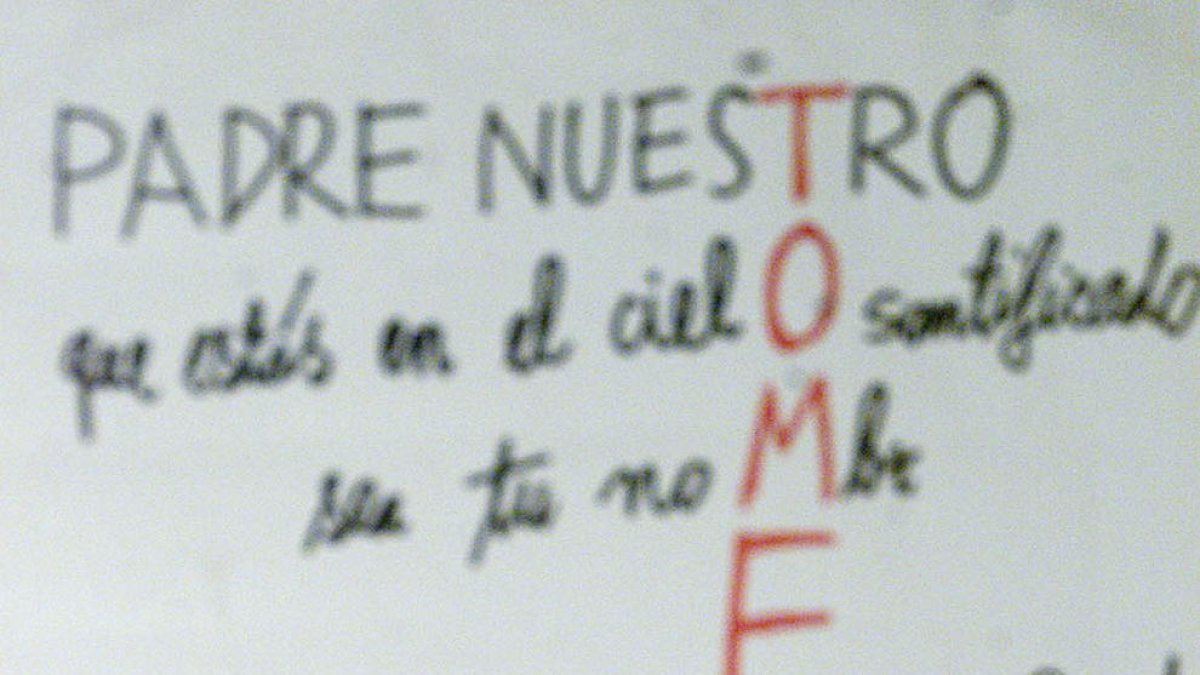 PADRE NUESTRO
que estés en el cielO santificado
sea tu noMbr